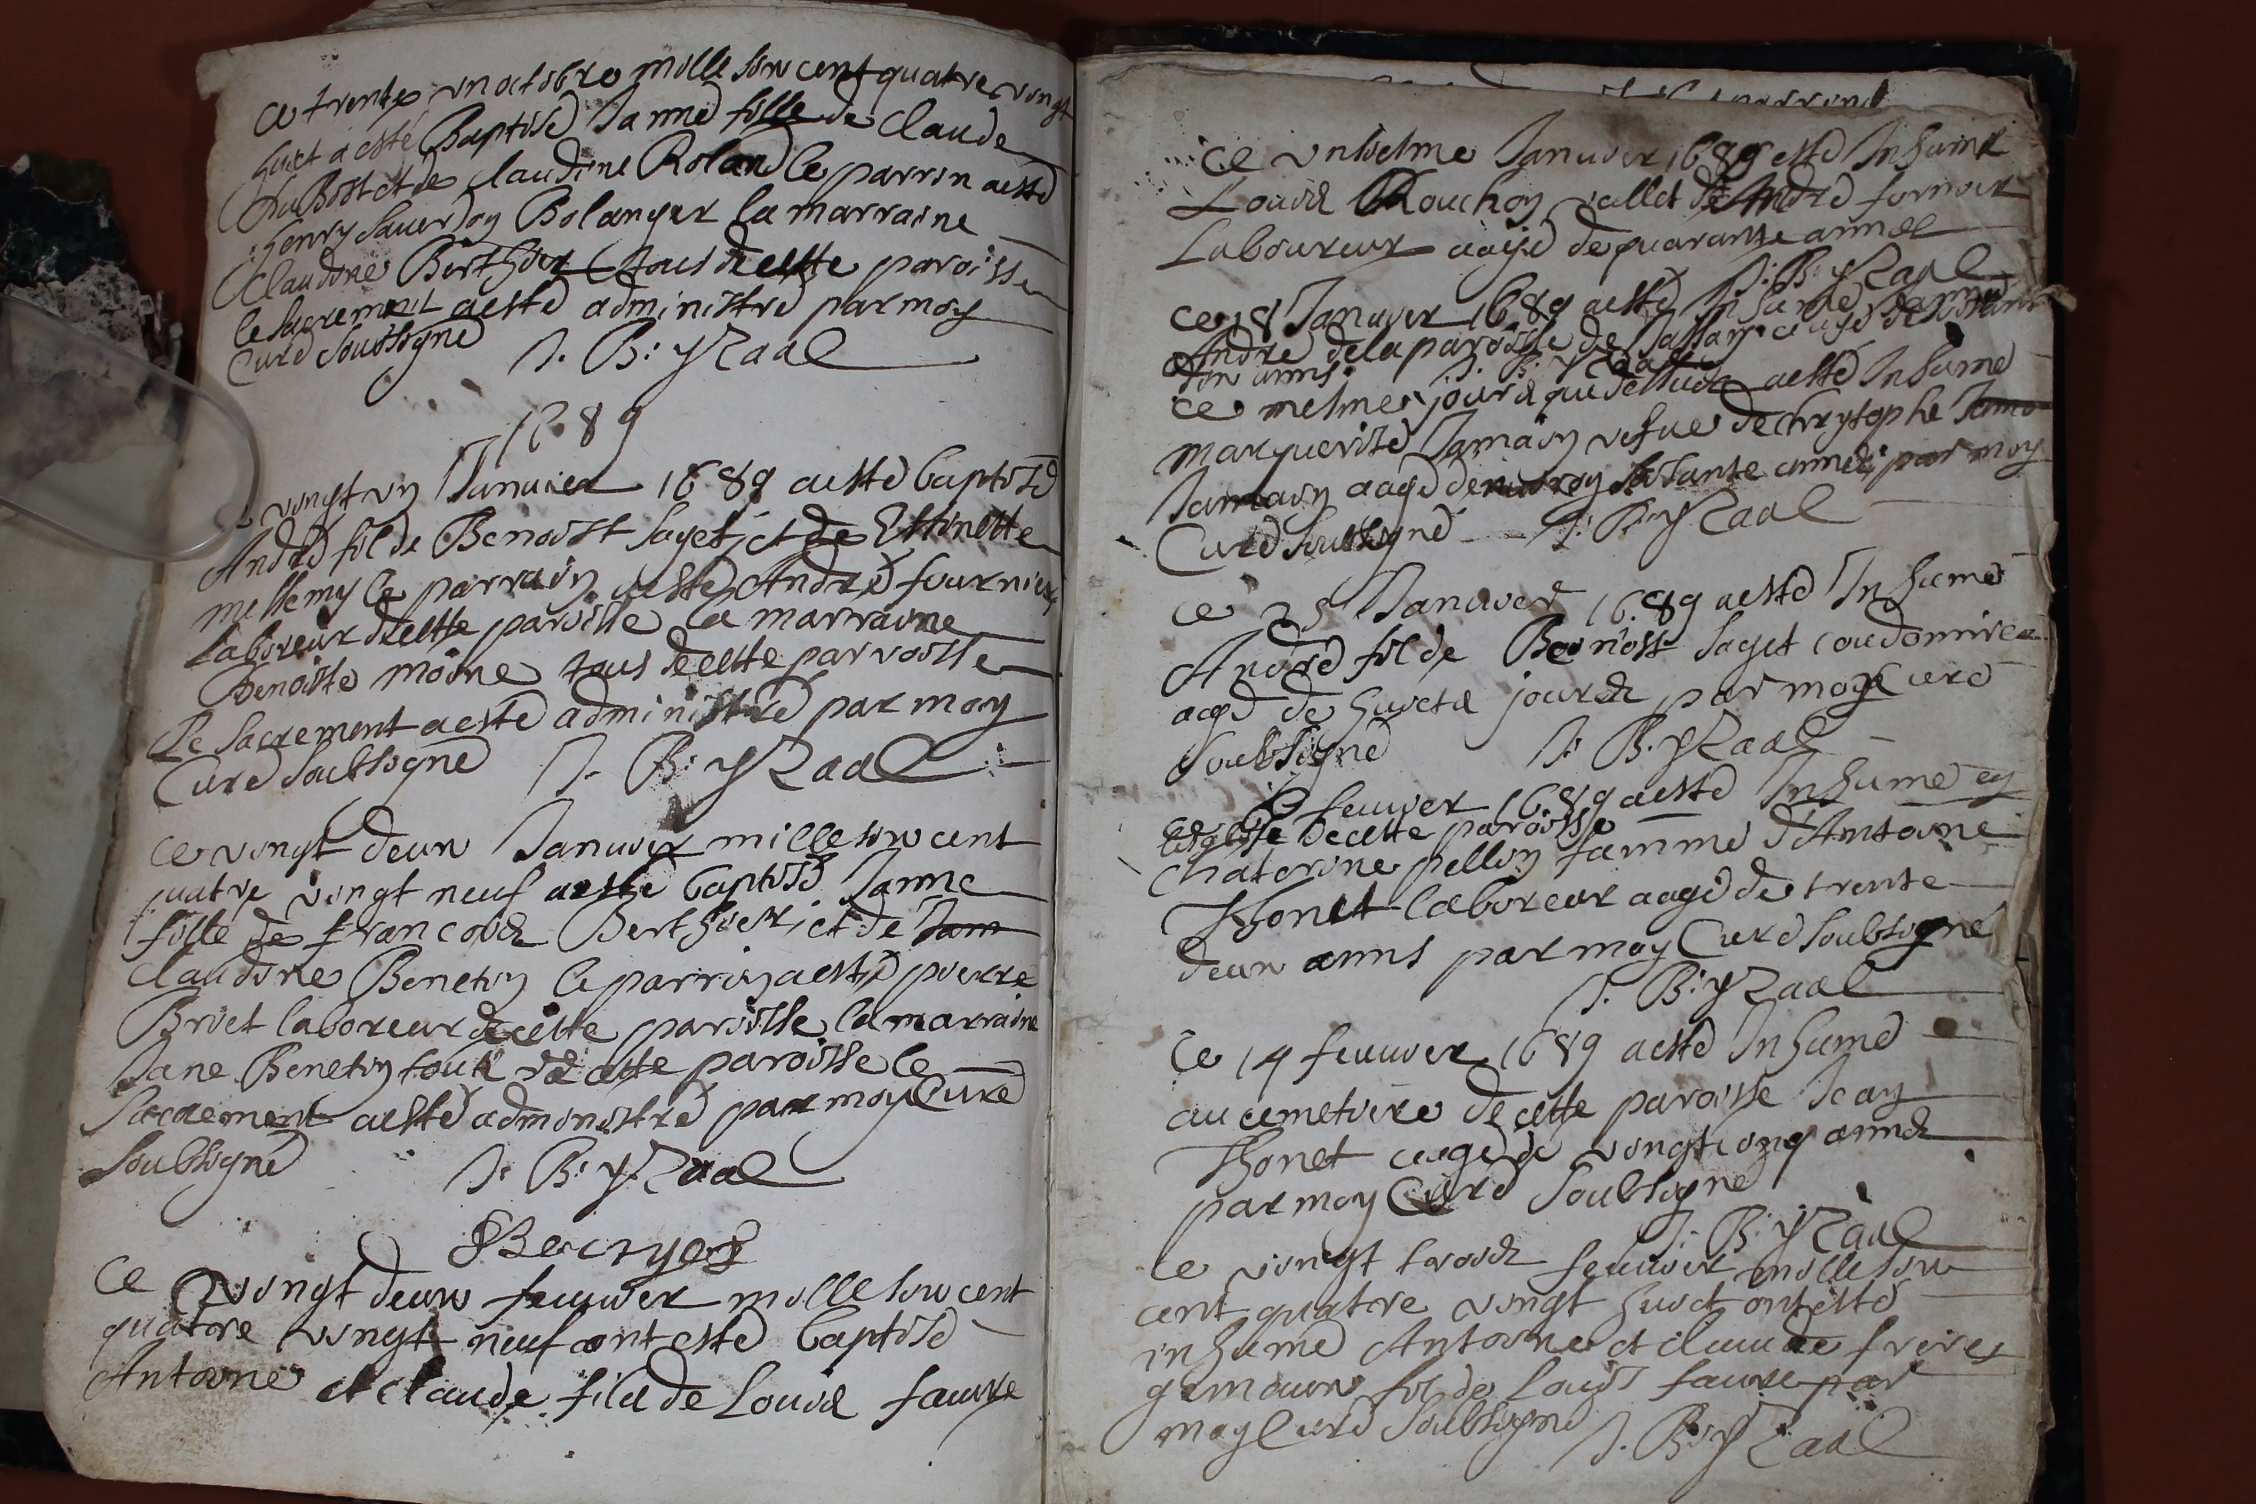 ce trente un octobre mille six cent quatre vingt
huict a esté Baptisé Janne fille de Claude
DuBost et de claudine Roland le parrin a esté
henry Bolanger la marraine
Claudine Berthier tous de cette paroisse
le Sacrement a esté administré par moy
Curé soubsigné J. B. Yzaal
1689
ce vingt un Januier 1689 a esté baptisé
André fil de Benoist Saget, et de Estinette
mellemy le parrain a esté André fournier
Laboreur de cette paroisse la marraine
Benoiste moine tous de cette parroisse
Le Sacrement a esté administré par moy
Curé soubsigné J. B: Yzaal
ce vingt deux Januier mille six cent
quatre vingt neuf a esté baptisé Janne
fille de francois Berthier, et de Jann
claudine Beneton le parrin a esté pierre
Briet laboreur de cette paroisse la marraine
Jane Beneton tout de cette paroisse le
Sacrement a esté administré par moy Curé
soubsigné J. B: Yzaal
ce vingt deux feuuier mille six cent
quatre vingt neuf ont esté baptisé
Antoine et claude fils de Louis faure
ce unsiesme Januier 1689 a esté Inhumé
Louis Bouchon vallet de André fornier
Laboureur aagé de quarante annes
J. B: Yzaal
ce 18 Januier 1689 a esté Inhumé Janne
André de la paroisse de aagé de soixante
six anns J. B. Yzaal
ce mesme jour que dessus a esté Inhumé
marguerite Jamain vefue de chrystophe
Jamain aagé de soisante annes par moy
Curé soubsigné J: B: Yzaal
ce 25 Januier 1689 a esté Inhumé
André fil de Benoist Saget
aagé de huicts jours par moy Curé
soubsigné J: B: Yzaal
ce feuuier 1689 a esté Inhumé en
leglisse de cette paroisse
chaterine pellin famme d'Antoine
Thonet laboreur aagé de trente
deux anns par moy Curé soubsigné
J. B: Yzaal
ce 14 feuuier 1689 a esté Inhumé
au cemetiere de cette paroisse Jean
Thonet aagé de vingt cinq annes
par moy Curé soubsigné
J: B: Yzaal
le vingt trois feuuier mille six
cent quatre vingt huict ont esté
inhumé Antoine et claude freres
gemaux fil de Louis faure par
moy Curé soubsigné J. B: Yzaal